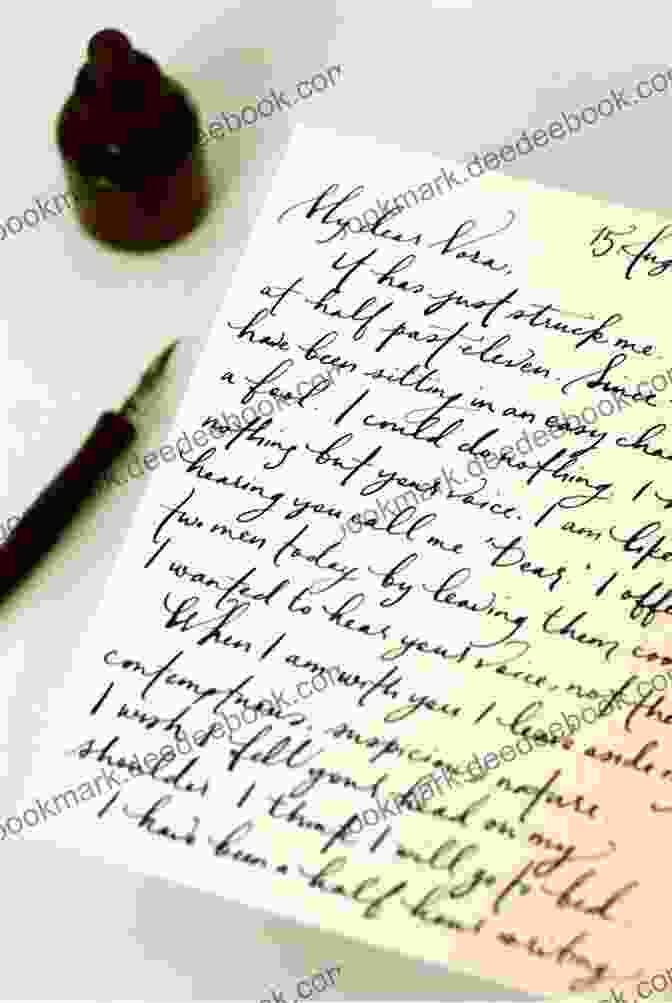 15 Aug
My dear Nora,
It has just struck me.
at half past eleven. Since
have been sitting in an easy chai
a fool. I could do nothing. I
nothing but your voice. I am like
hearing you call me 'Dear.' I offe
two men today by leaving them coo
I wanted to hear your voice, not the
When I am with you I leave aside
contemptuous, suspicious nature.
I wish I felt your head on my
shoulder. I think I will go to bed.
I have been a half hour writing
bookmark.deedeebook.com